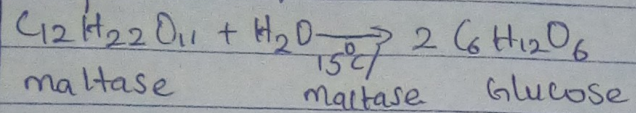 C12 H22 O11 + H2O → 2 C6 H12 O6
15°C/
maltase maltase Glucose